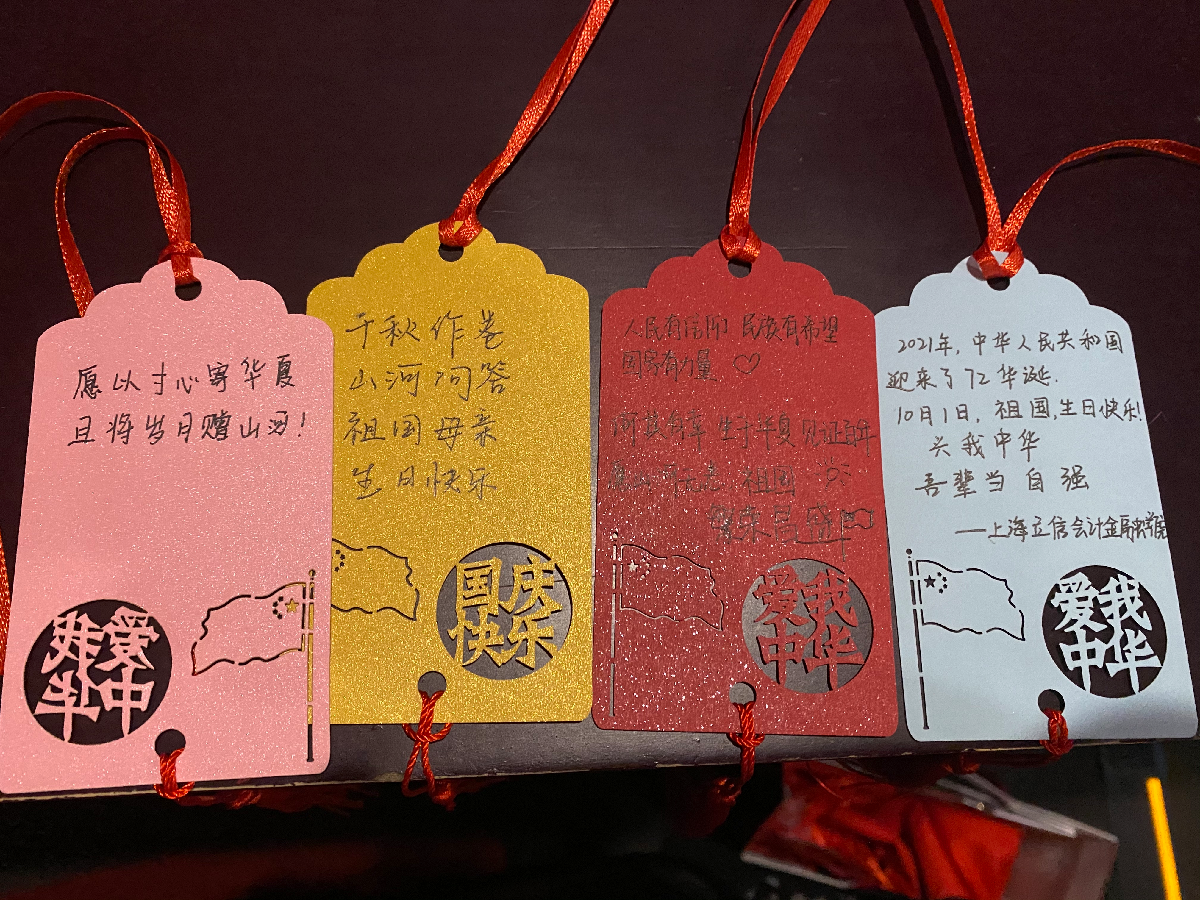 愿以寸心寄华夏
且将岁月赠山河!
爱我
中华
千秋作卷
山河问答
祖国母亲
生日快乐
国庆
快乐
人民有信仰 民族有希望
国家有力量 ♡
何其有幸 生于华夏 见证百年
祖国
繁荣昌盛
爱我
中华
2021年,中华人民共和国
迎来了72华诞.
10月1日,祖国,生日快乐!
兴我中华
吾辈当自强
——上海立信会计金融学院
爱我
中华